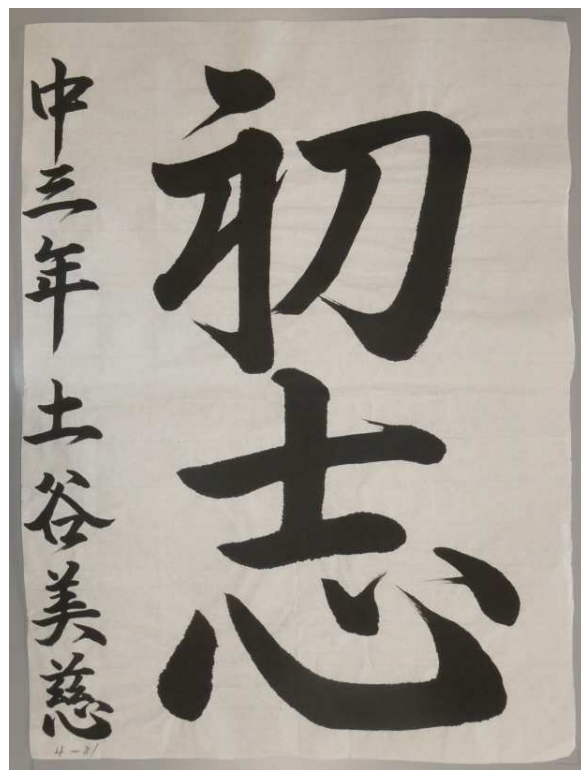 初志
中三年 土谷美慈
4-81